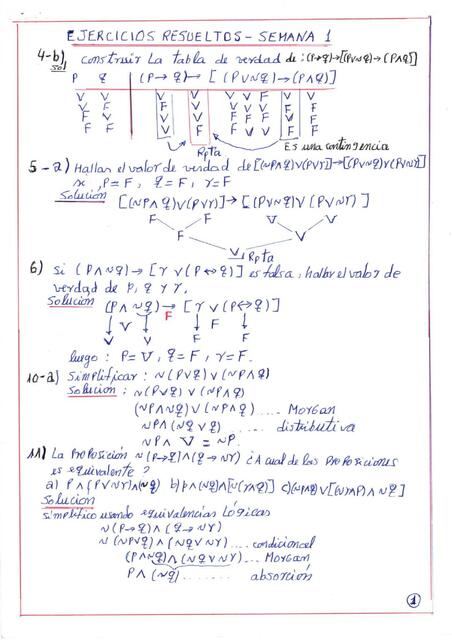 EJERCICIOS RESUELTOS - SEMANA 1
4-b) construir La tabla de verdad de: (P→q)→[(PV~q)→(P∧q)]
Sol
P q (P→q)→[(PV~q)→(P∧q)]
Rpta
Es una contingencia
5-a) Hallar el valor de verdad de [(~P∧q)V(PVr)]→[(PV~q)V(PV~r)]
si, P=F, q=F, r=F
Solución [(~P∧q)V(PVr)]→[(PV~q)V(PV~r)]
F F V V
F V
V Rpta
6) Si (P∧~q)→[rV(P↔q)] es falsa, hallar el valor de
verdad de P, q y r.
Solución (P∧~q)→[rV(P↔q)]
F
V V F F
luego: P=V, q=F, r=F.
10-a) Simplificar: ~(PVq)V(~P∧q)
Solución: ~(PVq)V(~P∧q)
(~P∧~q)V(~P∧q) .... Morgan
~P∧(~qVq) ..... distributiva
~P∧V = ~P.
11) La Proposición ~(P→q)∧(q→~r) ¿A cual de las Proposiciones
es equivalente?
a) P∧(PV~r)∧(~q) b) p∧(~q)∧[~(r∧q)]
Solución
simplifico usando equivalencias lógicas
~(P→q)∧(q→~r)
~(~PVq)∧(~qV~r) .... condicional
(P∧~q)∧(~qV~r) .... Morgan
P∧(~q) ........ absorción
1